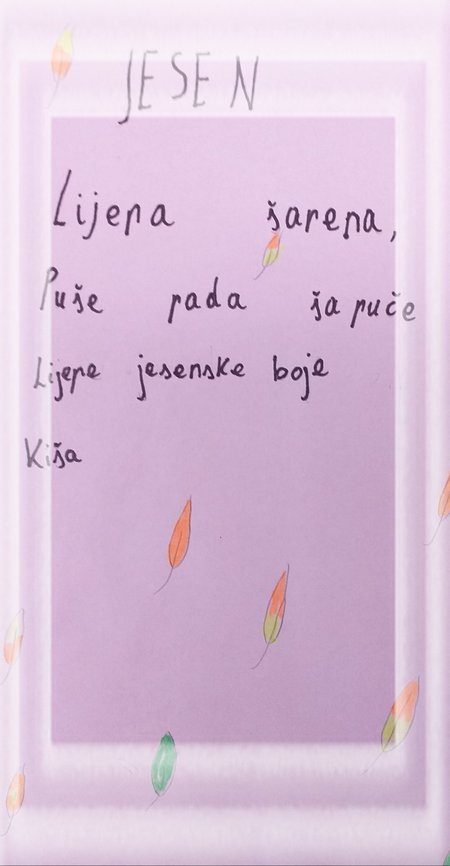 JESEN
Lijepa šarena,
Puše pada šapuče
Lijepe jesenske boje
Kiša